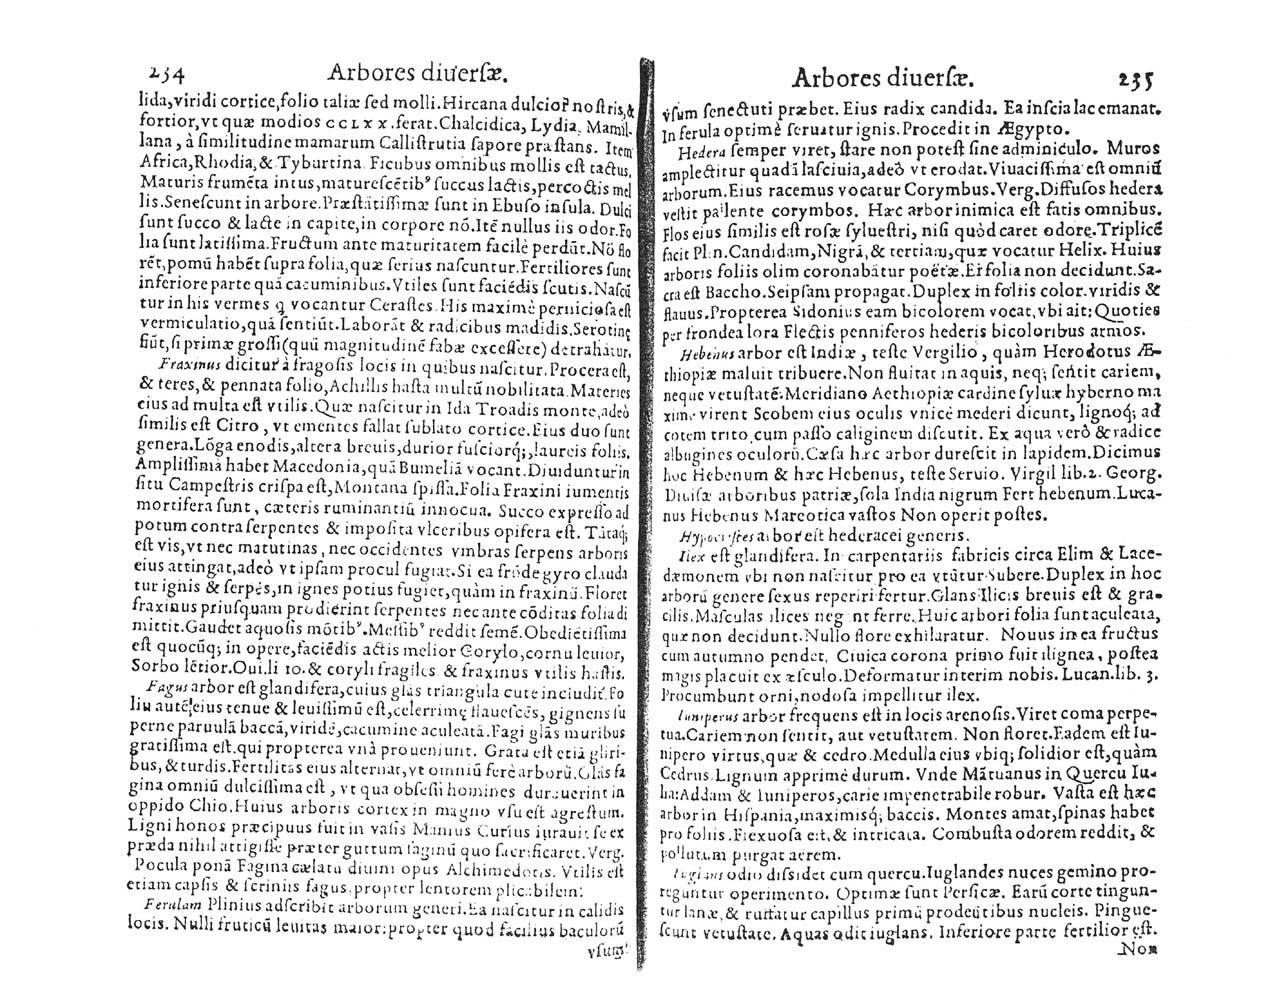 234 Arbores diuersæ.
lida,viridi cortice,folio taliæ sed molli.Hircana dulcior nostris,&
fortior,vt quæ modios CCLXX.ferat.Chalcidica, Lydia, Mamil-
lana, à similitudine mamarum Callistrutia sapore præstans. Item
Africa,Rhodia,& Tyburtina. Ficubus omnibus mollis est tactus,
Maturis frumēta intus,maturescētib⁹ succus lactis,percoctis mel
lis.Senescunt in arbore.Præstātissimæ sunt in Ebuso insula. Dulci
sunt succo & lacte in capite,in corpore nō.Itē nullus iis odor.Fo
lia sunt latissima.Fructum ante maturitatem facilè perdūt.Nō flo
rēt,pomū habēt supra folia,quæ serius nascuntur.Fertiliores sunt
inferiore parte quā cacuminibus.Vtiles sunt faciēdis scutis.Nascū
tur in his vermes q vocantur Cerastes. His maximè perniciosa est
vermiculatio,quā sentiūt.Laborāt & radicibus madidis.Serotinę
fiūt,si primæ grossi(quū magnitudinē fabæ excessere) detrahātur.
Fraxinus dicitur à fragosis locis in quibus nascitur. Procera est,
& teres,& pennata folio,Achillis hasta multū nobilitata. Materies
eius ad multa est vtilis.Quæ nascitur in Ida Troadis monte,adeò
similis est Citro, vt ementes fallat sublato cortice.Eius duo sunt
genera.Lōga enodis,altera breuis,durior fusciorq;,laureis foliis.
Amplissimā habet Macedonia,quā Bumeliā vocant.Diuiduntur in
situ Campestris crispa est,Montana spissa.Folia Fraxini iumentis
mortifera sunt, cæteris ruminantiū innocua. Succo expresso ad
potum contra serpentes & imposita vlceribus opifera est. Tātaq;
est vis,vt nec matutinas, nec occidentes vmbras serpens arboris
eius attingat,adeò vt ipsam procul fugiat.Si ea frōde gyro clauda
tur ignis & serpēs,in ignes potius fugiet,quàm in fraxinū.Floret
fraxinus priusquam prodierint serpentes nec ante cōditas folia di
mittit.Gaudet aquosis mōtib⁹.Messib⁹ reddit semē.Obediētissima
est quocūq; in opere,faciēdis actis melior Corylo,cornu leuior,
Sorbo lētior.Oui.li 10. & coryli fragiles & fraxinus vtilis hastis.
Fagus arbor est glandifera,cuius glās triangula cute includit. Fo
liū autē eius tenue & leuissimū est,celerrimę flauescēs, gignens su
perne paruulā baccā,viridē,cacumine aculeatā.Fagi glās muribus
gratissima est.qui propterea vnà proueniunt. Grata est etiā gliri-
bus, & turdis.Fertilitas eius alternat,vt omniū ferè arborū.Glās fa
gina omniū dulcissima est, vt qua obsessi homines durauerint in
oppido Chio.Huius arboris cortex in magno vsu est agrestum.
Ligni honos præcipuus fuit in vasis Manius Curius iurauit se ex
præda nihil attigisse præter guttum faginū quo sacrificaret.Verg.
Pocula ponā Fagina cælatū diuini opus Alchimedotis. Vtilis est
etiam capsis & scriniis fagus,propter lentorem plicabilem:
Ferulam Plinius adscribit arborum generi.Ea nascitur in calidis
locis. Nulli fruticū leuitas maior:propter quod facilius baculorū
vsum
Arbores diuersæ. 235
vsum senectuti præbet. Eius radix candida. Ea inscia lac emanat.
In ferula optimè seruatur ignis.Procedit in Ægypto.
Hedera semper viret, stare non potest sine adminiculo. Muros
amplectitur quadā lasciuia,adeò vt erodat.Viuacissima est omniū
arborum.Eius racemus vocatur Corymbus.Verg.Diffusos hedera
vestit pallente corymbos. Hæc arbor inimica est satis omnibus.
Flos eius similis est rosæ syluestri, nisi quòd caret odore.Triplicē
facit Plin.Candidam,Nigrā,& tertiam,quæ vocatur Helix. Huius
arboris foliis olim coronabātur poëtæ.Ei folia non decidunt.Sa-
cra est Baccho.Seipsam propagat.Duplex in foliis color.viridis &
flauus.Propterea Sidonius eam bicolorem vocat,vbi ait: Quoties
per frondea lora Flectis penniferos hederis bicoloribus armos.
Hebenus arbor est Indiæ, teste Vergilio, quàm Herodotus Æ-
thiopiæ maluit tribuere.Non fluitat in aquis, neq; sentit cariem,
neque vetustatē.Meridiano Aethiopiæ cardine syluæ hyberno ma
ximè virent Scobem eius oculis vnicè mederi dicunt, lignoq; ad
cotem trito,cum passo caliginem discutit. Ex aqua verò & radice
albugines oculorū.Cæsa hæc arbor durescit in lapidem.Dicimus
hoc Hebenum & hæc Hebenus, teste Seruio. Virgil lib.2. Georg.
Diuisæ arboribus patriæ,sola India nigrum Fert hebenum.Luca-
nus Hebenus Mareotica vastos Non operit postes.
Hypocistes arbor est hederacei generis.
Ilex est glandifera. In carpentariis fabricis circa Elim & Lace-
dæmonem vbi non nascitur pro ea vtūtur Subere.Duplex in hoc
arborū genere sexus reperiri fertur.Glans Ilicis breuis est & gra-
cilis.Masculas ilices negant ferre.Huic arbori folia sunt aculeata,
quæ non decidunt.Nullo flore exhilaratur. Nouus in ea fructus
cum autumno pendet. Ciuica corona primo fuit ilignea, postea
magis placuit ex æsculo.Deformatur interim nobis. Lucan.lib. 3.
Procumbunt orni,nodosa impellitur ilex.
Iuniperus arbor frequens est in locis arenosis. Viret coma perpe-
tua.Cariem non sentit, aut vetustatem. Non floret.Eadem est Iu-
nipero virtus,quæ & cedro.Medulla eius vbiq; solidior est,quàm
Cedrus.Lignum apprimè durum. Vnde Mātuanus in Quercu Iu-
lia:Addam & Iuniperos,carie impenetrabile robur. Vasta est hæc
arbor in Hispania,maximisq; baccis. Montes amat,spinas habet
pro foliis.Flexuosa est,& intricata. Combusta odorem reddit, &
pollutum purgat aerem.
Iuglans odio dissidet cum quercu.Iuglandes nuces gemino pro-
teguntur operimento. Optimæ sunt Persicæ. Earū corte tingun-
tur lanæ,& rutilatur capillus primū prodeūtibus nucleis. Pingue-
scunt vetustate. Aquas odit iuglans. Inferiore parte fertilior est.
Non